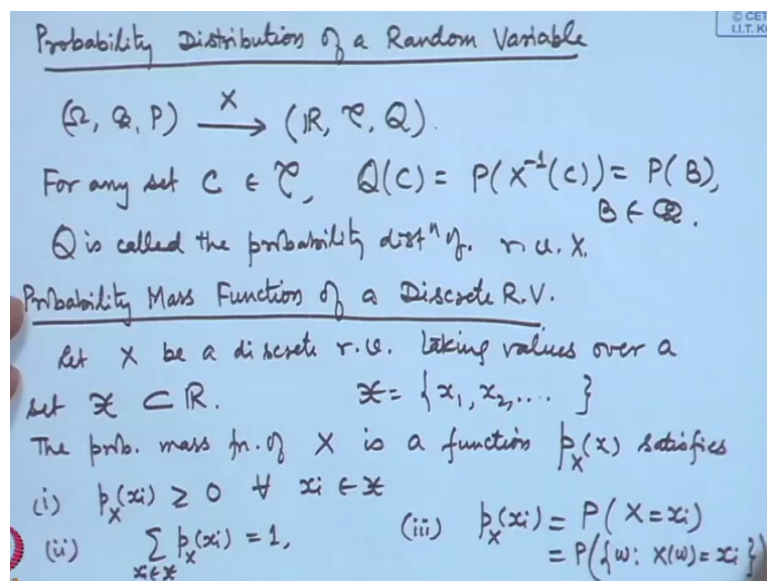 © CET
I.I.T. K
Probability Distribution of a Random Variable
(Ω, 𝓑, P) —X→ (ℝ, 𝒞, Q).
For any set C ∈ 𝒞, Q(C) = P(X⁻¹(C)) = P(B),
B ∈ 𝓑.
Q is called the probability distⁿ of. r.v. X.
Probability Mass Function of a Discrete R.V.
Let X be a discrete r.v. taking values over a
set 𝔛 ⊂ ℝ. 𝔛 = {x₁, x₂, .... }
The prob. mass fn. of X is a function p_X(x) satisfies
(i) p_X(xi) ≥ 0 ∀ xi ∈ 𝔛
(ii) Σ_{xi∈𝔛} p_X(xi) = 1, (iii) p_X(xi) = P(X = xi)
= P({ω: X(ω) = xi})